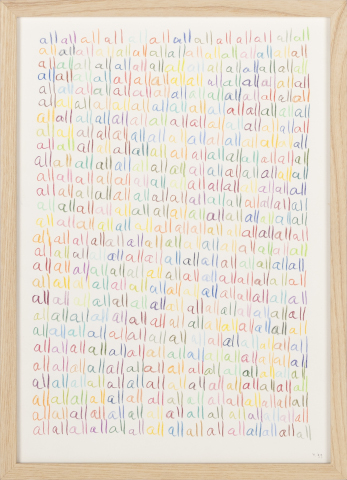 all all all all all all all all all all all all all
all all all all all all all all all all all all all all
all all all all all all all all all all all all all all
all all all all all all all all all all all all all all
all all all all all all all all all all all all all all
all all all all all all all all all all all all all all
all all all all all all all all all all all all all all
all all all all all all all all all all all all all all
all all all all all all all all all all all all all all
all all all all all all all all all all all all all all
all all all all all all all all all all all all all all
all all all all all all all all all all all all all all
all all all all all all all all all all all all all all
all all all all all all all all all all all all all
all all all all all all all all all all all all all all
all all all all all all all all all all all all all all
all all all all all all all all all all all all all all
all all all all all all all all all all all all all all
all all all all all all all all all all all all all all
all all all all all all all all all all all all all all
all all all all all all all all all all all all all all
all all all all all all all all all all all all all all
all all all all all all all all all all all all all all
all all all all all all all all all all all all all all
all all all all all all all all all all all all all all
all all all all all all all all all all all all all all
all all all all all all all all all all all all all all